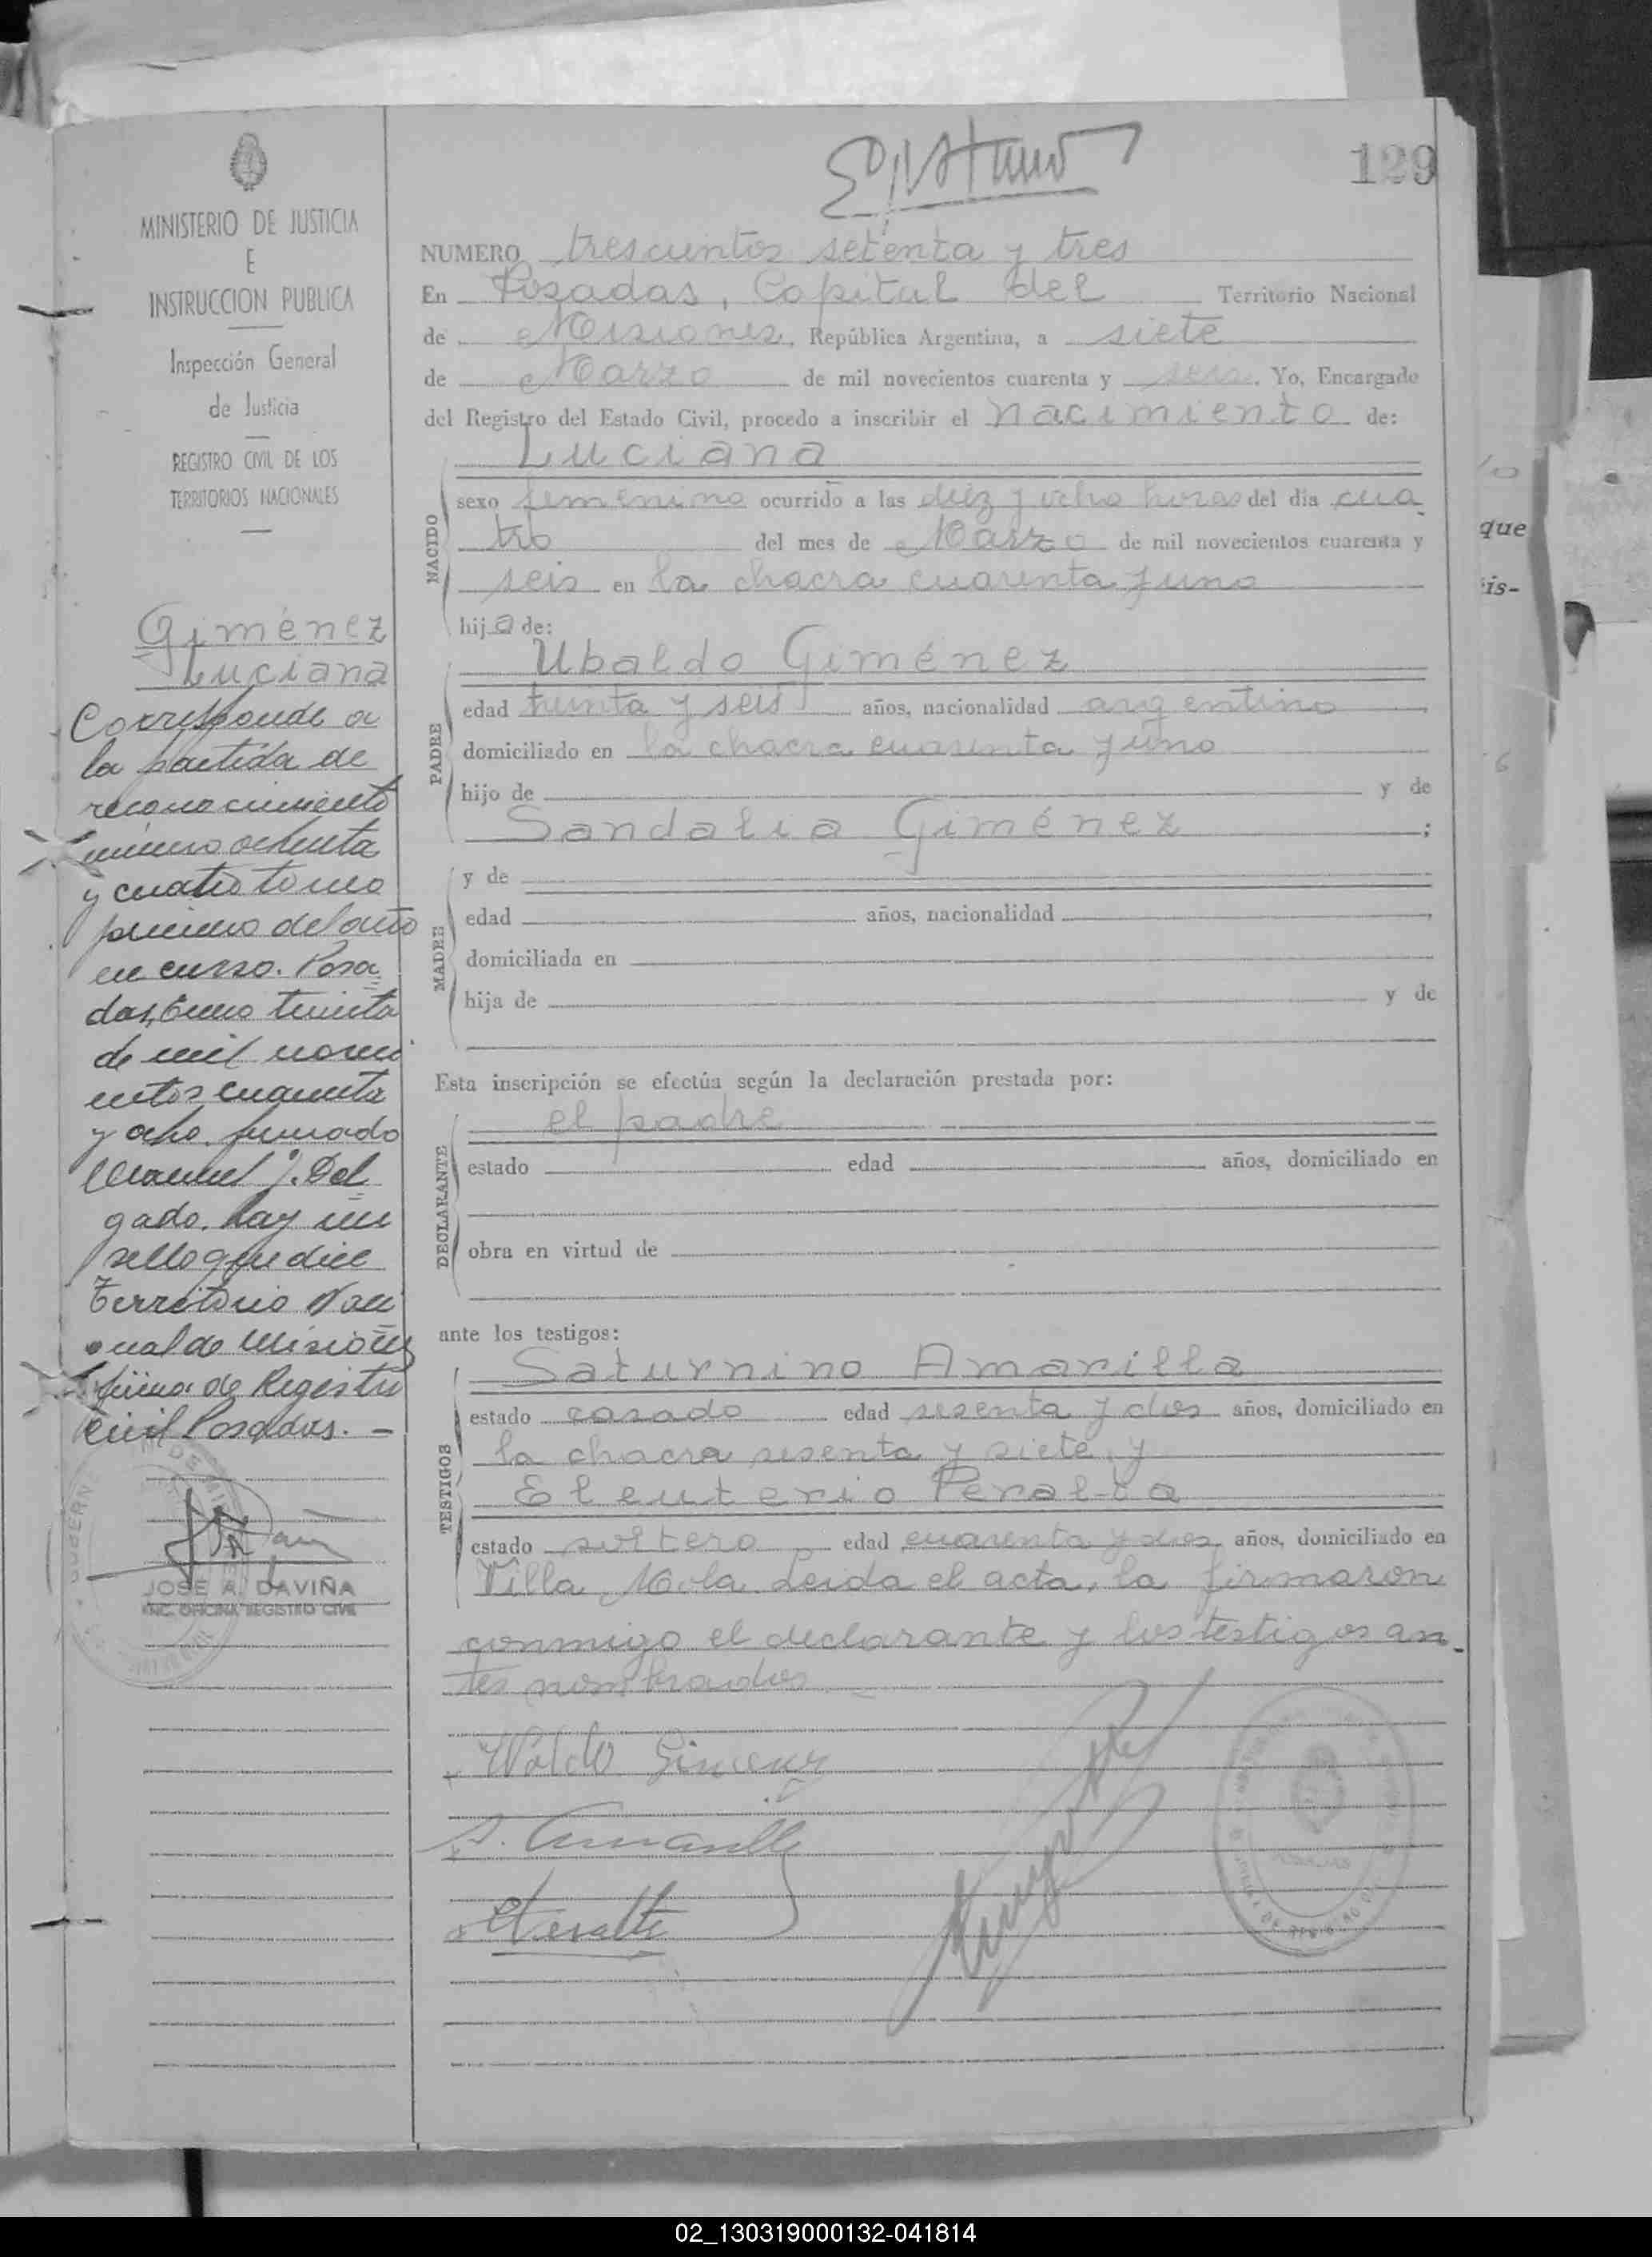 129
MINISTERIO DE JUSTICIA
E
INSTRUCCION PUBLICA
Inspección General
de Justicia
REGISTRO CIVIL DE LOS
TERRITORIOS NACIONALES
Giménez
Luciana
Corresponde a
la partida de
reconocimiento
número ochenta
y cuatro tomo
primero del año
en curso. Posa
das, Enero treinta
de mil noveci
entos cuarenta
y ocho. firmado
Manuel J. Del
gado. hay un
sello que dice
Territorio Naci
onal de Misiones
de Registro
Civil Posadas. —
JOSE A. DAVIÑA
ENC. OFICINA REGISTRO CIVIL
NUMERO trescientos setenta y tres
En Posadas, Capital del Territorio Nacional
de Misiones, República Argentina, a siete
de Marzo de mil novecientos cuarenta y seis. Yo, Encargado
del Registro del Estado Civil, procedo a inscribir el nacimiento de:
Luciana
NACIDO
sexo femenino ocurrido a las diez y ocho horas del día cua
tro del mes de Marzo de mil novecientos cuarenta y
seis en la chacra cuarenta y uno
hija de:
Ubaldo Giménez
PADRE
edad treinta y seis años, nacionalidad argentino
domiciliado en la chacra cuarenta y uno
hijo de y de
Sandalia Giménez ;
MADRE
y de
edad años, nacionalidad ,
domiciliada en
hija de y de
Esta inscripción se efectúa según la declaración prestada por:
el padre
DECLARANTE
estado edad años, domiciliado en
obra en virtud de
ante los testigos:
TESTIGOS
Saturnino Amarilla
estado casado edad sesenta y dos años, domiciliado en
la chacra sesenta y siete, y
Eleuterio Peralta
estado soltero edad cuarenta y dos años, domiciliado en
Villa Mola. Leida el acta, la firmaron
conmigo el declarante y los testigos an-
tes nombrados. —
Waldo Gimenez
S. Amarilla
E Peralta
que
is-
02_130319000132-041814